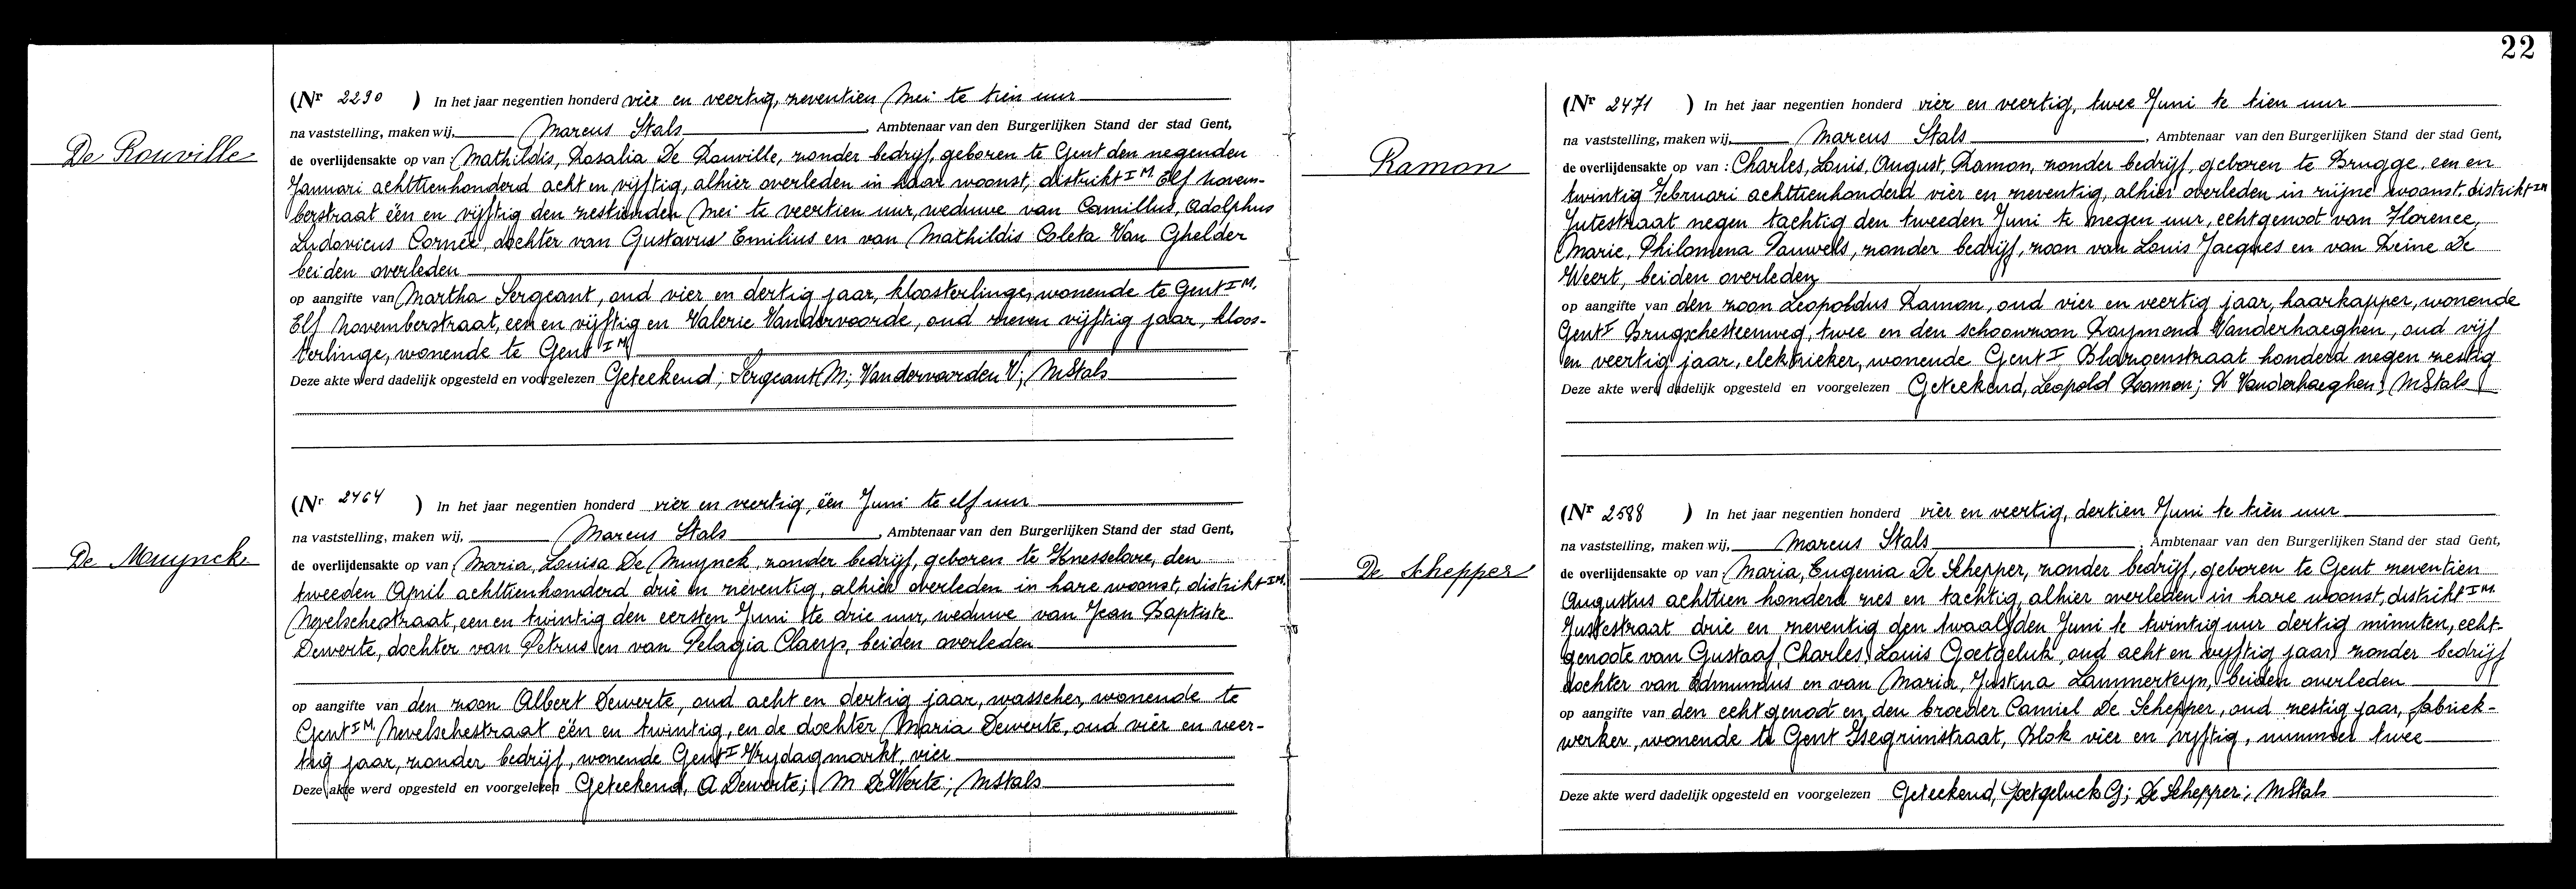 22
De Rouville
(Nr 2290 ) In het jaar negentien honderd vier en veertig, zeventien Mei te tien uur
na vaststelling, maken wij, Marcus Stals , Ambtenaar van den Burgerlijken Stand der stad Gent,
de overlijdensakte op van : Mathildis, Rosalia De Rouville, zonder bedrijf, geboren te Gent den negenden
Januari achttienhonderd acht en vijftig, alhier overleden in haar woonst, distrikt I M Elf Novem-
berstraat één en vijftig den zestienden Mei te veertien uur, weduwe van Camillus, Adolphus
Ludovicus Cornée, dochter van Gustavus Emilius en van Mathildis Coleta Van Ghelder
beiden overleden
op aangifte van Martha Sergeant, oud vier en dertig jaar, kloosterlinge, wonende te Gent I M.
Elf Novemberstraat, een en vijftig en Valerie Vandervoorde, oud zeven vijftig jaar, kloos-
terlinge, wonende te Gent I M
Deze akte werd dadelijk opgesteld en voorgelezen Geteekend; Sergeant M; Vandervoorden V; MStals
De Muynck
(Nr 2464 ) In het jaar negentien honderd vier en veertig, één Juni te elf uur
na vaststelling, maken wij, Marcus Stals , Ambtenaar van den Burgerlijken Stand der stad Gent,
de overlijdensakte op van Maria, Louisa De Muynck, zonder bedrijf, geboren te Knesselare, den
tweeden April achttienhonderd drie en zeventig, alhier overleden in hare woonst, distrikt I M.
Nevelschestraat, een en twintig den eersten Juni te drie uur, weduwe van Jean Baptiste
Dewerte, dochter van Petrus en van Pelagia Claeys, beiden overleden
op aangifte van den zoon Albert Dewerte, oud acht en dertig jaar, wasscher, wonende te
Gent I M. Nevelschestraat één en twintig, en de dochter Maria Dewerte, oud vier en veer-
tig jaar, zonder bedrijf, wonende Gent I Vrydagmarkt, vier
Deze akte werd opgesteld en voorgelezen Geteekend, A Dewerte; M DeWerte; MStals
Ramon
(Nr 2471 ) In het jaar negentien honderd vier en veertig, twee Juni te tien uur
na vaststelling, maken wij, Marcus Stals , Ambtenaar van den Burgerlijken Stand der stad Gent,
de overlijdensakte op van : Charles, Louis, August, Ramon, zonder bedrijf, geboren te Brugge, een en
twintig Februari achttienhonderd vier en zeventig, alhier overleden in zijne woonst, distrikt I M
Jutestraat negen tachtig den tweeden Juni te negen uur, echtgenoot van Florence,
Marie, Philomena Pauwels, zonder bedrijf, zoon van Louis Jacques en van Reine De
Weert, beiden overleden
op aangifte van den zoon Leopoldus Ramon, oud vier en veertig jaar, haarkapper, wonende
Gent I Brugschesteenweg, twee en den schoonzoon Raymond Vanderhaeghen, oud vijf
en veertig jaar, elektrieker, wonende Gent I Blazoenstraat honderd negen zestig
Deze akte werd dadelijk opgesteld en voorgelezen Geteekend, Leopold Ramon; R Vanderhaeghen; MStals
De Schepper
(Nr 2588 ) In het jaar negentien honderd vier en veertig, dertien Juni te tien uur
na vaststelling, maken wij, Marcus Stals , Ambtenaar van den Burgerlijken Stand der stad Gent,
de overlijdensakte op van : Maria, Eugenia De Schepper, zonder bedrijf, geboren te Gent zeventien
Augustus achttien honderd zes en tachtig, alhier overleden in hare woonst, distrikt I M.
Jutestraat drie en zeventig den twaalfden Juni te twintig uur dertig minuten, echt-
genoote van Gustaaf, Charles, Louis Goetgeluk, oud acht en vyftig jaar, zonder bedrijf
dochter van Edmundus en van Maria, Justina Lammertyn, beiden overleden
op aangifte van den echtgenoot en den broeder Camiel De Schepper, oud zestig jaar, fabriek-
werker, wonende te Gent Isegrimstraat, Blok vier en vyftig, nummer twee
Deze akte werd dadelijk opgesteld en voorgelezen Geteekend, Goetgeluck G; De Schepper; MStals